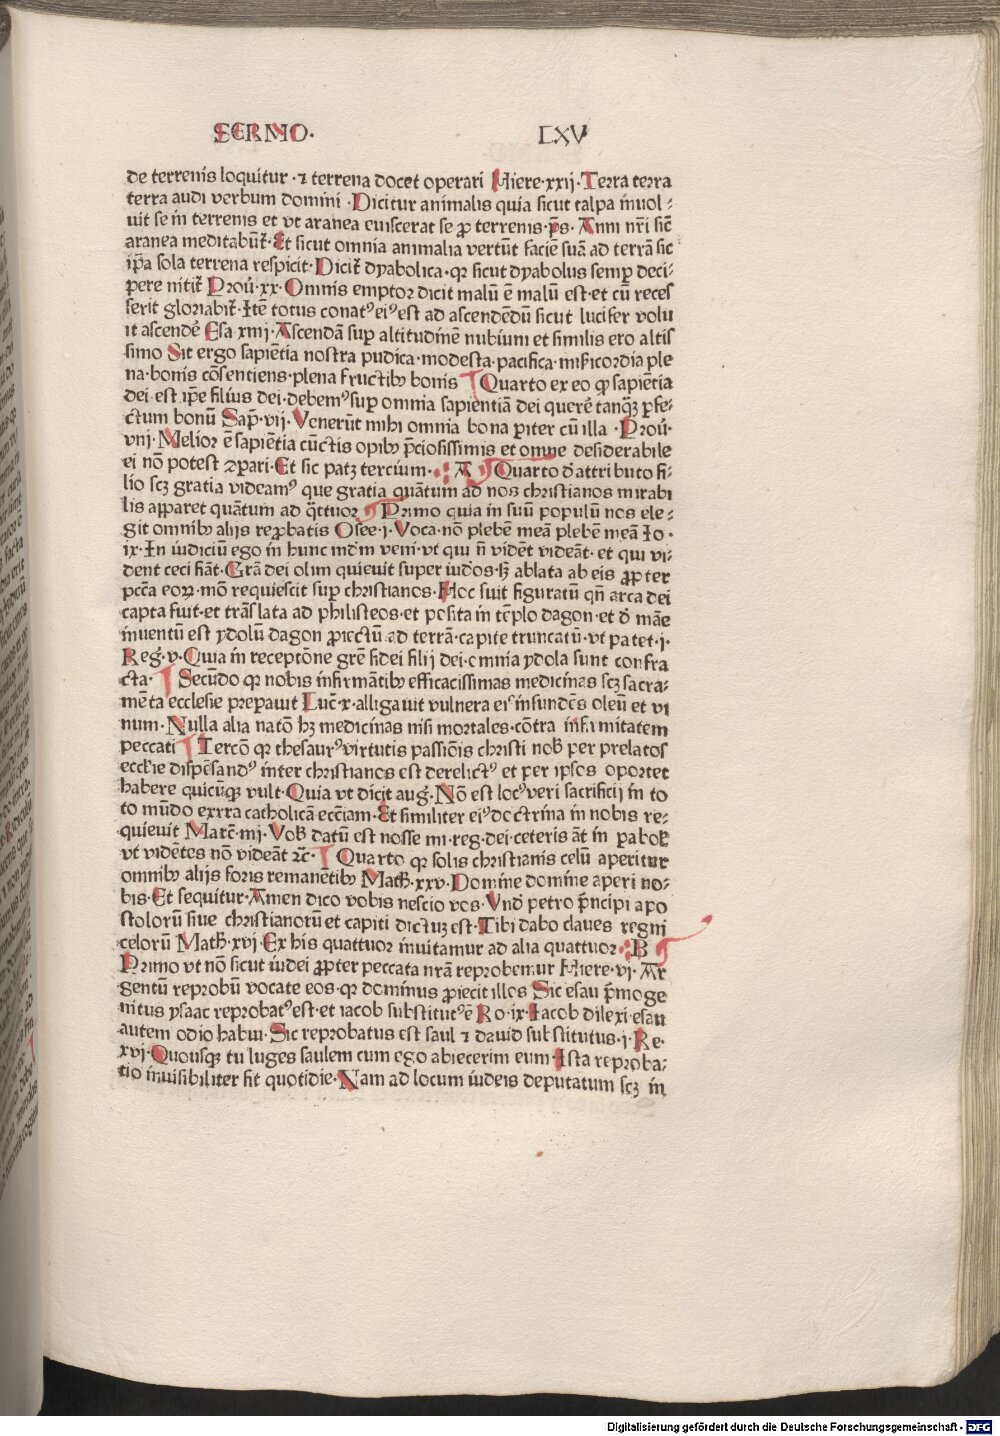 SERMO· LXV
de terrenis loquitur ·⁊ terrena docet operari Hiere·xxij·Terra terra
terra audi verbum domini ·Dicitur animalis quia sicut talpa īuol⸗
uit se in terrenis et vt aranea euiscerat se ꝓ terrenis·ps̄· Anni nr̄i sic̄
aranea meditabūt᷑·Et sicut omnia animalia vertūt faciē suā ad terrā sic
ip̄a sola terrena respicit·Dicit᷑ dyabolica·qꝛ sicut dyabolus semꝑ deci⸗
pere nitit᷑ Prou̇·xx·Omnis emptor dicit malū ē malū est·et cū reces
serit gloriabit᷑·Itē totus conatꝰ eiꝰ est ad ascendēdū sicut lucifer volu
it ascendē Esa·xiiij·Ascendā suꝑ altitudinē nubium et similis ero altis
simo Sit ergo sapiētia nostra pudica·modesta·pacifica·mīsicordia ple
na·bonis cōsentiens·plena fructibꝫ bonis ¶ Quarto ex eo ꝙ sapiētia
dei est ip̄e filius dei·debemꝰ suꝑ omnia sapientiā dei querē tanq̄ꝫ ꝑfe⸗
ctum bonū Sap̄·vij·Venerūt mihi omnia bona ꝑiter cū illa ·Prou̇·
viij·Melior ē sapiētia cūctis opibꝫ p̄ciosissimis et omne desiderabile
ei nō potest ꝯpari·Et sic patꝫ tercium·:·A ¶ Quarto d̄ attributo fi⸗
lio scꝫ gratia videamꝰ que gratia quātum ad nos christianos mirabi
lis apparet quātum ad q̄ttuor ¶ Primo quia in suū populū nos ele⸗
git omnibꝫ alijs reꝓbatis Osee·i·Voca·nō plebē meā plebē meā Io·
ix·In iudiciū ego in hunc mūdm̄ veni·vt qui n̄ vidēt videāt·et qui vi⸗
dent ceci fiāt·Gr̄a dei olim quieuit super iudos·sꝫ ablata ab eis ꝓpter
pctā eoꝝ·mō requiescit suꝑ christianos·Hoc fuit figuratū qn̄ arca dei
capta fuit·et trāslata ad philisteos·et posita in tēplo dagon·et d̄ māe
inuentū est ydolū dagon ꝓiectū ad terrā·capite truncatū·vt patet·j·
Reg̅·v·Quia in receptōne gr̄e fidei filij dei·omnia ydola sunt confra
cta· ¶ Secūdo qꝛ nobis infirmātibꝫ efficacissimas medicinas scꝫ sacra⸗
mēta ecclesie preparuit Luc̄·x·alligauit vulnera eiꝰ infundēs oleū et vi
num·Nulla alia natō hꝫ medicinas nisi mortales·cōtra infirmitatem
peccati ¶ Tercō qꝛ thesaurꝰ virtutis passiōis christi nob̄ per prelatos
ecclie dispēsandꝰ inter christianos est derelictꝰ et per ipsos oportet
habere quicūqꝫ vult·Quia vt dicit aug̅·Nō est locꝰ veri sacrificij in to
to mūdo extra catholicā ecc̄iam·Et similiter eiꝰ doctrina in nobis re⸗
quieuit Marc̄·iiij·Vob̄ datū est nosse mi·reg·dei·ceteris āt in ꝑabol̄
vt vidētes nō videāt ⁊c̄· ¶ Quarto qꝛ solis christianis celū aperitur
omnibꝫ alijs foris remanētibꝫ Math̄·xxv·Domine domine aperi no⸗
bis·Et sequitur·Amen dico vobis nescio vos·Vnd̄ petro p̄ncipi apo
stolorū siue christianorū et capiti dictuꝫ est·Tibi dabo claues regni
celorū Math̄·xvj·Ex his quattuor inuitamur ad alia quattuor·:·B ¶
Primo vt nō sicut iudei ꝓpter peccata nr̄a reprobemur Hiere·vi·Ar
gentū reprobū vocate eos·qꝛ dominus ꝓiecit illos Sic esau p̄moge
nitus ysaac reprobatꝰ est·et iacob substitutꝰ ē Ro·ix·Iacob dilexi·esau
autem odio habui·Sic reprobatus est saul ⁊ dauid substitutus·j·Re·
xvj·Quousqꝫ tu luges saulem cum ego abiecerim eum·Ista reproba⸗
tio inuisibiliter fit quotidie·Nam ad locum iudeis deputatum scꝫ in
Digitalisierung gefördert durch die Deutsche Forschungsgemeinschaft - DFG